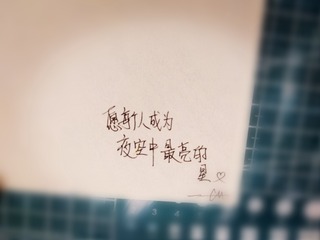 愿新人成为
夜空中最亮的
星♡